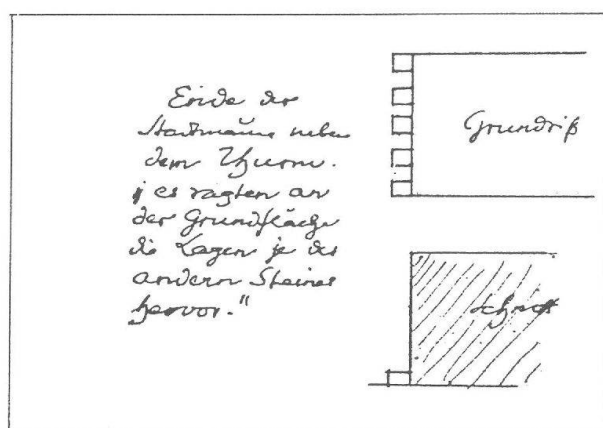 Ende der
Stadtmauer neben
dem Thurm.
es ragten an
der Grundfläche
die Lagen je des
andern Steines
hervor."
Grundriß
Schnitt